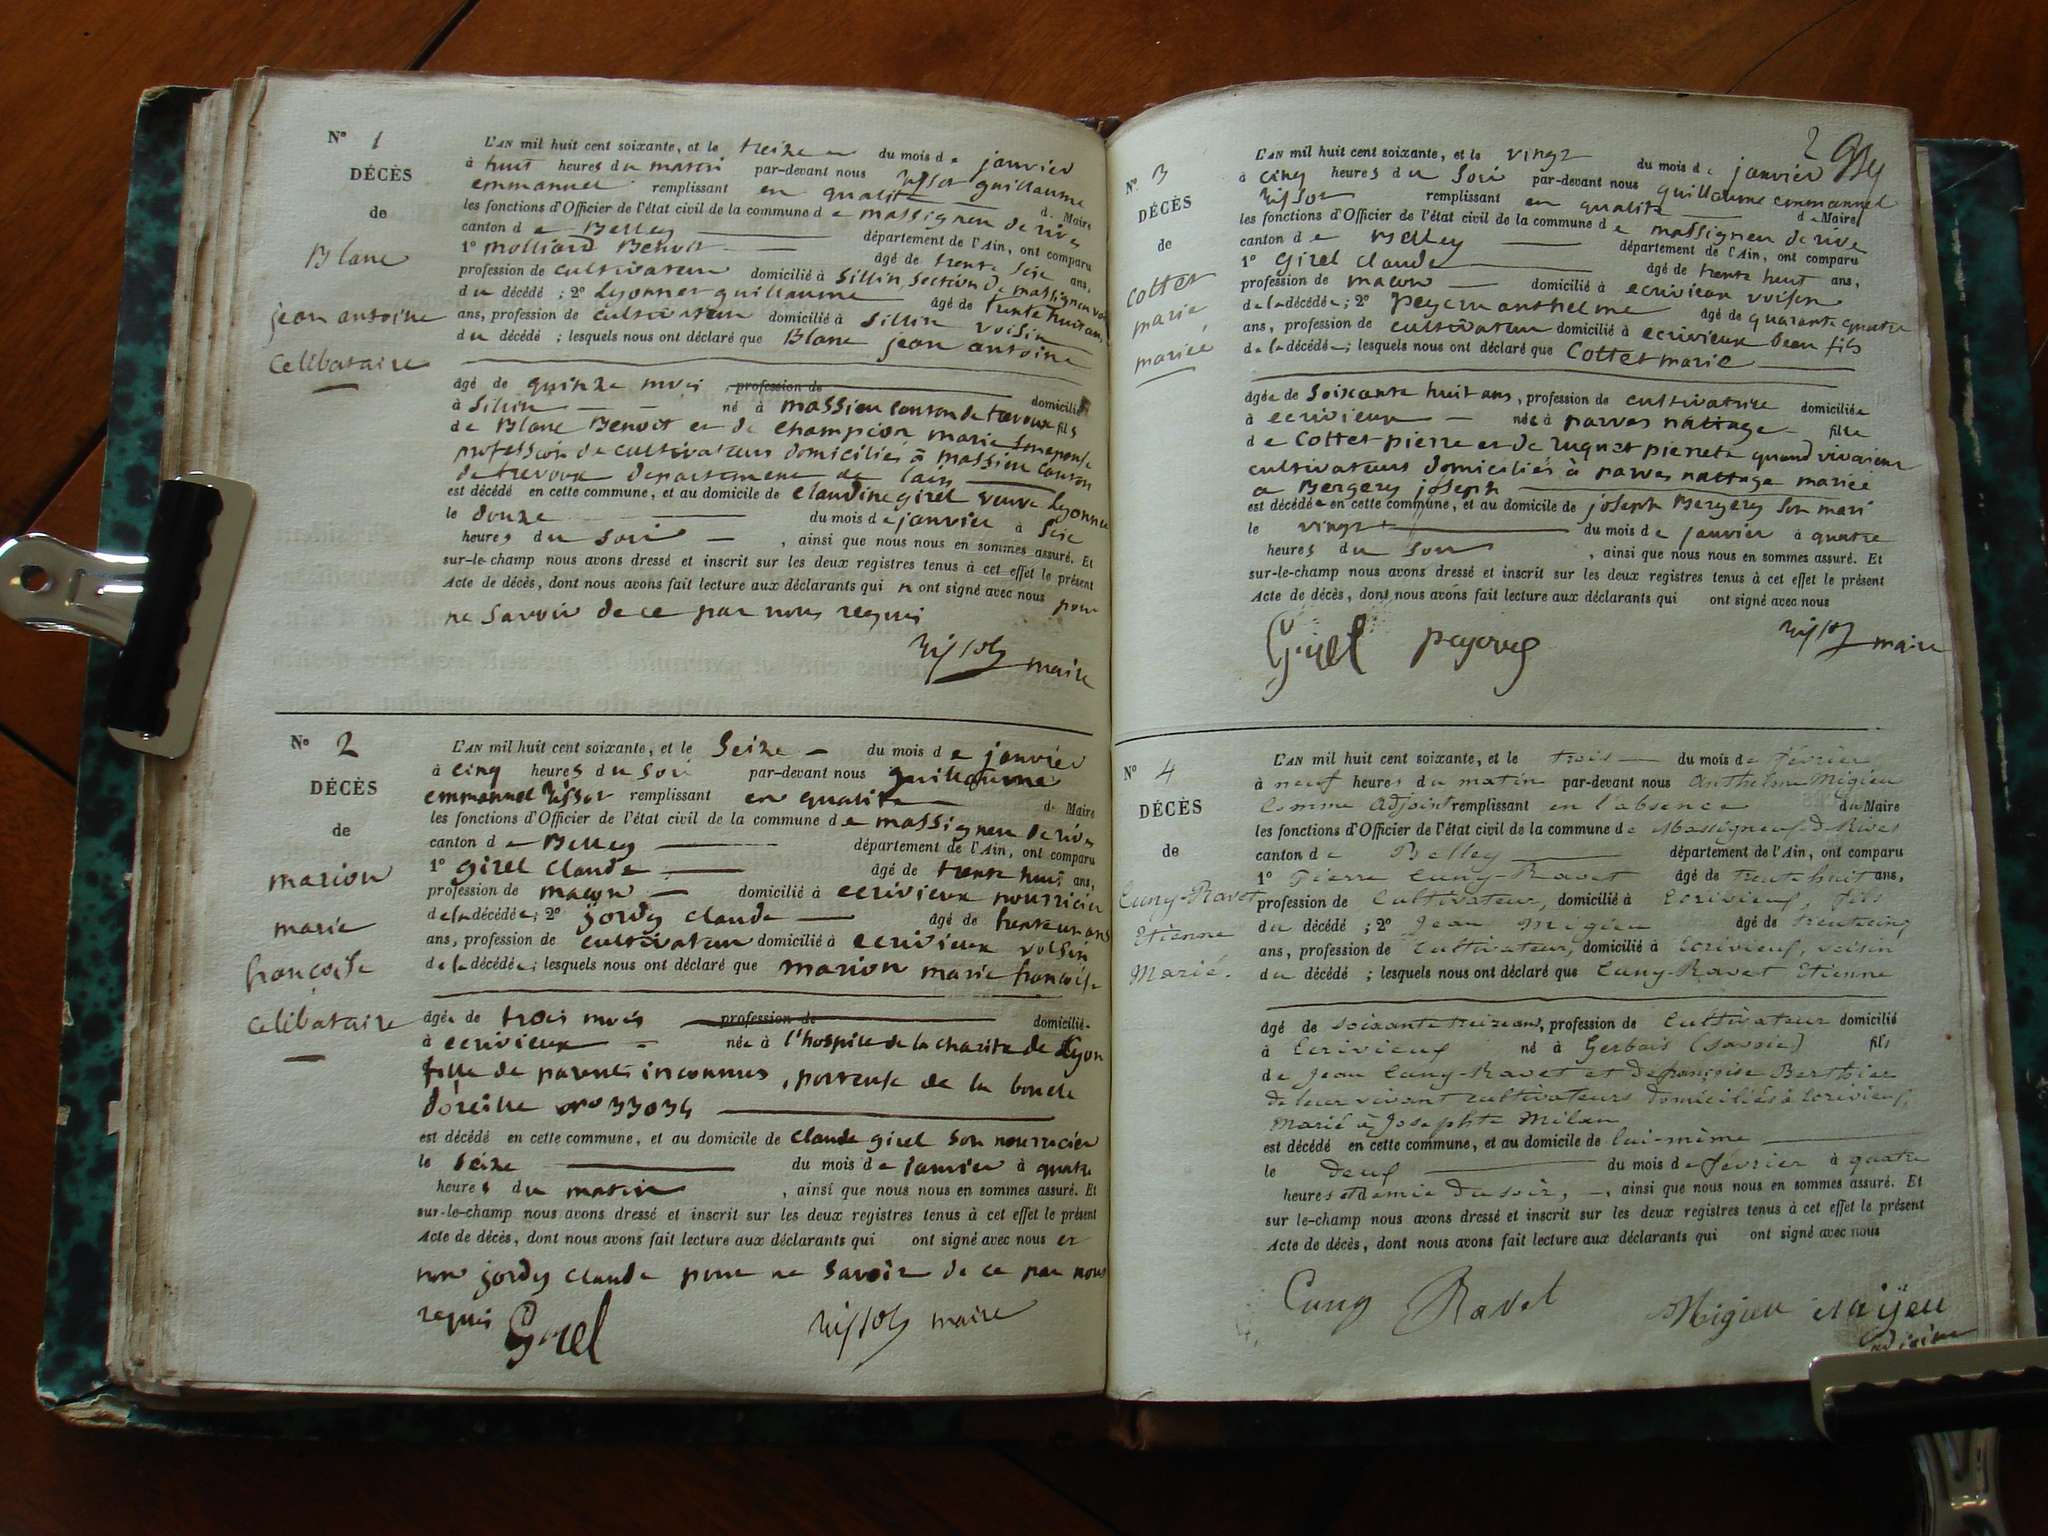 N° 1
DÉCÈS
de
Blanc
jean antoine
Celibataire
L'AN mil huit cent soixante, et le treize du mois de janvier
à huit heures du matin par-devant nous Rissot guillaume
emmanuel remplissant en qualité de Maire
les fonctions d'Officier de l'état civil de la commune de massigneu de rives
canton de Belley département de l'Ain, ont comparu
1° molliard Benoit âgé de trente Seise ans,
profession de cultivateur domicilié à Sillin, Section de massigneu voisin
du décédé ; 2° Lyonnet guillaume âgé de trente huit ans
ans, profession de cultivateur domicilié à Sillin voisin
du décédé ; lesquels nous ont déclaré que Blanc jean antoine
âgé de quinze mois profession de domicilié
à Sillin né à massieu canton de trevoux fils
de Blanc Benoit et de champion marie Son epouse
profession de cultivateurs domiciliés à massieu canton
de trevoux departement de lain
est décédé en cette commune, et au domicile de claudine girel veuve Lyonnet
le douze du mois de janvier à Seise
heures du Soir , ainsi que nous nous en sommes assuré. Et
sur-le-champ nous avons dressé et inscrit sur les deux registres tenus à cet effet le présent
Acte de décès, dont nous avons fait lecture aux déclarants qui n ont signé avec nous pour
ne Savoir de ce par nous requis
Rissot maire
N° 2
DÉCÈS
de
marion
marie
françoise
celibataire
L'AN mil huit cent soixante, et le Seize du mois de janvier
à cinq heures du Soir par-devant nous guillaume
emmanuel Rissot remplissant en qualité de Maire
les fonctions d'Officier de l'état civil de la commune de massigneu de rives
canton de Belley département de l'Ain, ont comparu
1° girel claude âgé de trente huit ans,
profession de maçon domicilié à ecrivieux nourricier
de la décédée ; 2° jordy claude âgé de trente un ans
ans, profession de cultivateur domicilié à ecrivieux voisin
de la décédée ; lesquels nous ont déclaré que marion marie françoise
âgée de trois mois profession de domicilié
à ecrivieux née à l'hospice de la charité de Lyon
fille de parents inconnus, porteuse de la boucle
d'oreille no 33034
est décédé en cette commune, et au domicile de claude girel son nourricier
le Seize du mois de janvier à quatre
heures du matin , ainsi que nous nous en sommes assuré. Et
sur-le-champ nous avons dressé et inscrit sur les deux registres tenus à cet effet le présent
Acte de décès, dont nous avons fait lecture aux déclarants qui ont signé avec nous et
non jordy claude pour ne Savoir de ce par nous
requis Girel Rissot maire
2
N° 3
DÉCÈS
de
Cottet
marie
mariée
L'AN mil huit cent soixante, et le vingt du mois de janvier
à cinq heures du Soir par-devant nous guillaume emmanuel
Rissot remplissant en qualité de Maire
les fonctions d'Officier de l'état civil de la commune de massigneu de rive
canton de Belley département de l'Ain, ont comparu
1° girel claude âgé de trente huit ans,
profession de maçon domicilié à ecrivieux voisin
de la décédée ; 2° anthelme âgé de quarante quatre
ans, profession de cultivateur domicilié à ecrivieux beau fils
de la décédée ; lesquels nous ont déclaré que Cottet marie
âgée de Soixante huit ans, profession de cultivatrice domiciliée
à ecrivieux née à parves nattage fille
de Cottet pierre et de pierrete quand vivaient
cultivateurs domiciliés à parves nattage mariée
a Bergery joseph
est décédée en cette commune, et au domicile de joseph Bergery Son mari
le vingt du mois de janvier à quatre
heures du Soir , ainsi que nous nous en sommes assuré. Et
sur-le-champ nous avons dressé et inscrit sur les deux registres tenus à cet effet le présent
Acte de décès, dont nous avons fait lecture aux déclarants qui ont signé avec nous
Girel Rissot maire
N° 4
DÉCÈS
de
Cuny-Ravet
Etienne
Marié.
L'AN mil huit cent soixante, et le trois du mois de février
à neuf heures du matin par-devant nous Anthelme Migieu
Comme Adjoint remplissant en l'absence du Maire
les fonctions d'Officier de l'état civil de la commune de Massigneuf-de-Rives
canton de Belley département de l'Ain, ont comparu
1° Pierre Cuny-Ravet âgé de trente huit ans,
profession de Cultivateur, domicilié à Ecrivieuf, fils
du décédé ; 2° Jean Migieu âgé de trente cinq
ans, profession de Cultivateur, domicilié à Ecrivieuf, voisin
du décédé ; lesquels nous ont déclaré que Cuny-Ravet Etienne
âgé de soixante treize ans, profession de Cultivateur domicilié
à Ecrivieuf né à Gerbais (Savoie) fils
de Jean Cuny-Ravet et de françoise Berthier
de leur vivant cultivateurs domiciliés à Ecrivieuf,
Marié à Josephte Milan
est décédé en cette commune, et au domicile de lui-même
le Deux du mois de février à quatre
heures et demie du soir, , ainsi que nous nous en sommes assuré. Et
sur le-champ nous avons dressé et inscrit sur les deux registres tenus à cet effet le présent
Acte de décès, dont nous avons fait lecture aux déclarants qui ont signé avec nous
Cuny Ravet Migieu